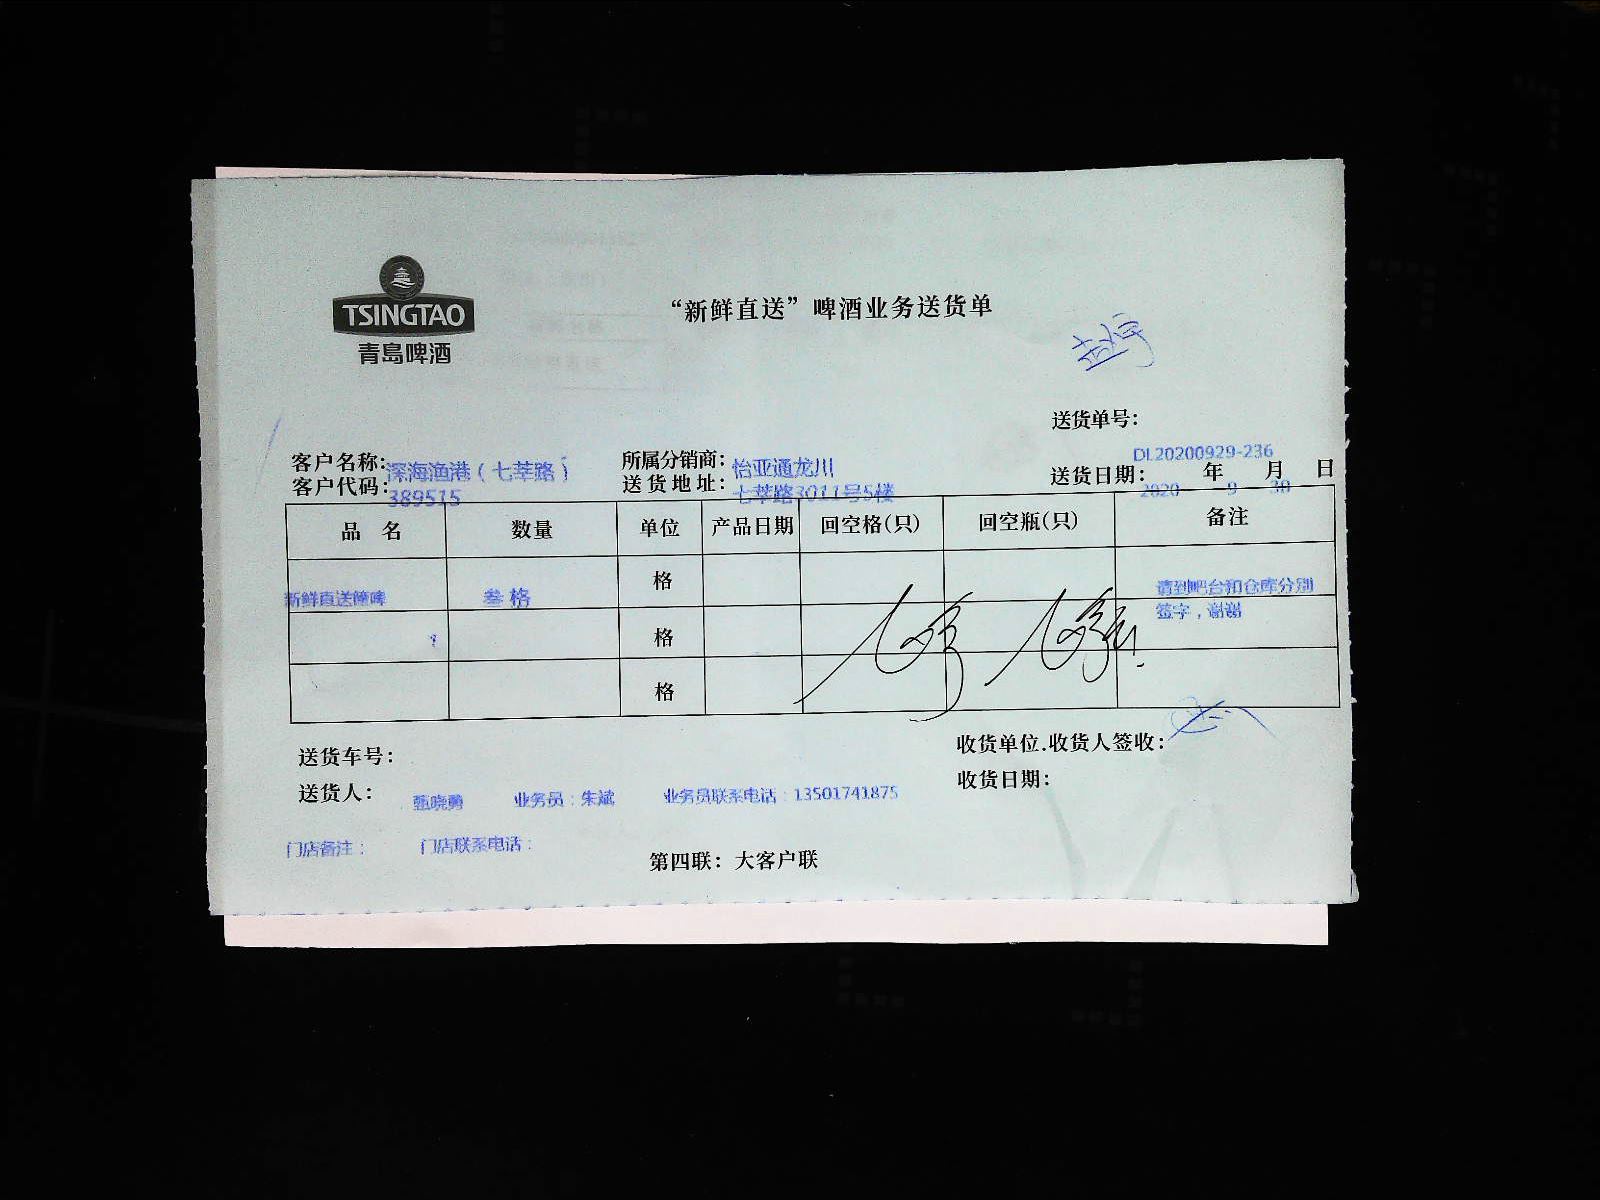 TSINGTAO
青島啤酒
“新鲜直送”啤酒业务送货单
送货单号：
DL20200929-236
客户名称：深海渔港（七莘路） 所属分销商：怡亚通龙川 送货日期： 年 月 日
客户代码：389515 送货地址：七莘路3011号5楼 2020 9 30
品 名 数量 单位 产品日期 回空格(只) 回空瓶(只) 备注
新鲜直送 叁格 格 请到吧台和仓库分别
签字，谢谢
格
格
送货车号： 收货单位.收货人签收：
送货人： 甄晓勇 业务员：朱斌 业务员联系电话：13501741875 收货日期：
门店备注： 门店联系电话：
第四联：大客户联